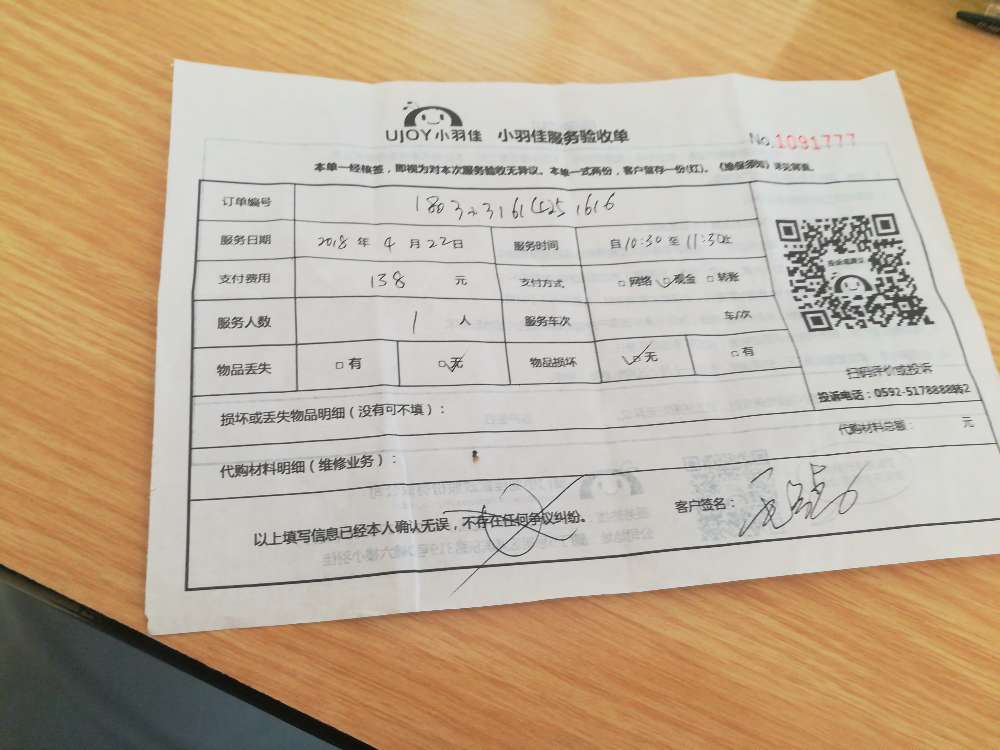 UJOY小羽佳 小羽佳服务验收单
No.1091777
本单一经核签，即视为对本次服务验收无异议。本单一式两份，客户留存一份(红)。《维保须知》详见背面。
订单编号
服务日期 2018 年 4 月 22 日 服务时间 自 10:30 至 11:30 止
支付费用 138 元 支付方式 □ 网络 □ 现金 □ 转账
服务人数 1 人 服务车次 车/次
物品丢失 □ 有 □ 无 物品损坏 □ 无 □ 有
扫码评价或投诉
投诉电话：0592-5178888转2
损坏或丢失物品明细（没有可不填）：
代购材料总额： 元
代购材料明细（维修业务）：
以上填写信息已经本人确认无误，不存在任何争议纠纷。
客户签名：